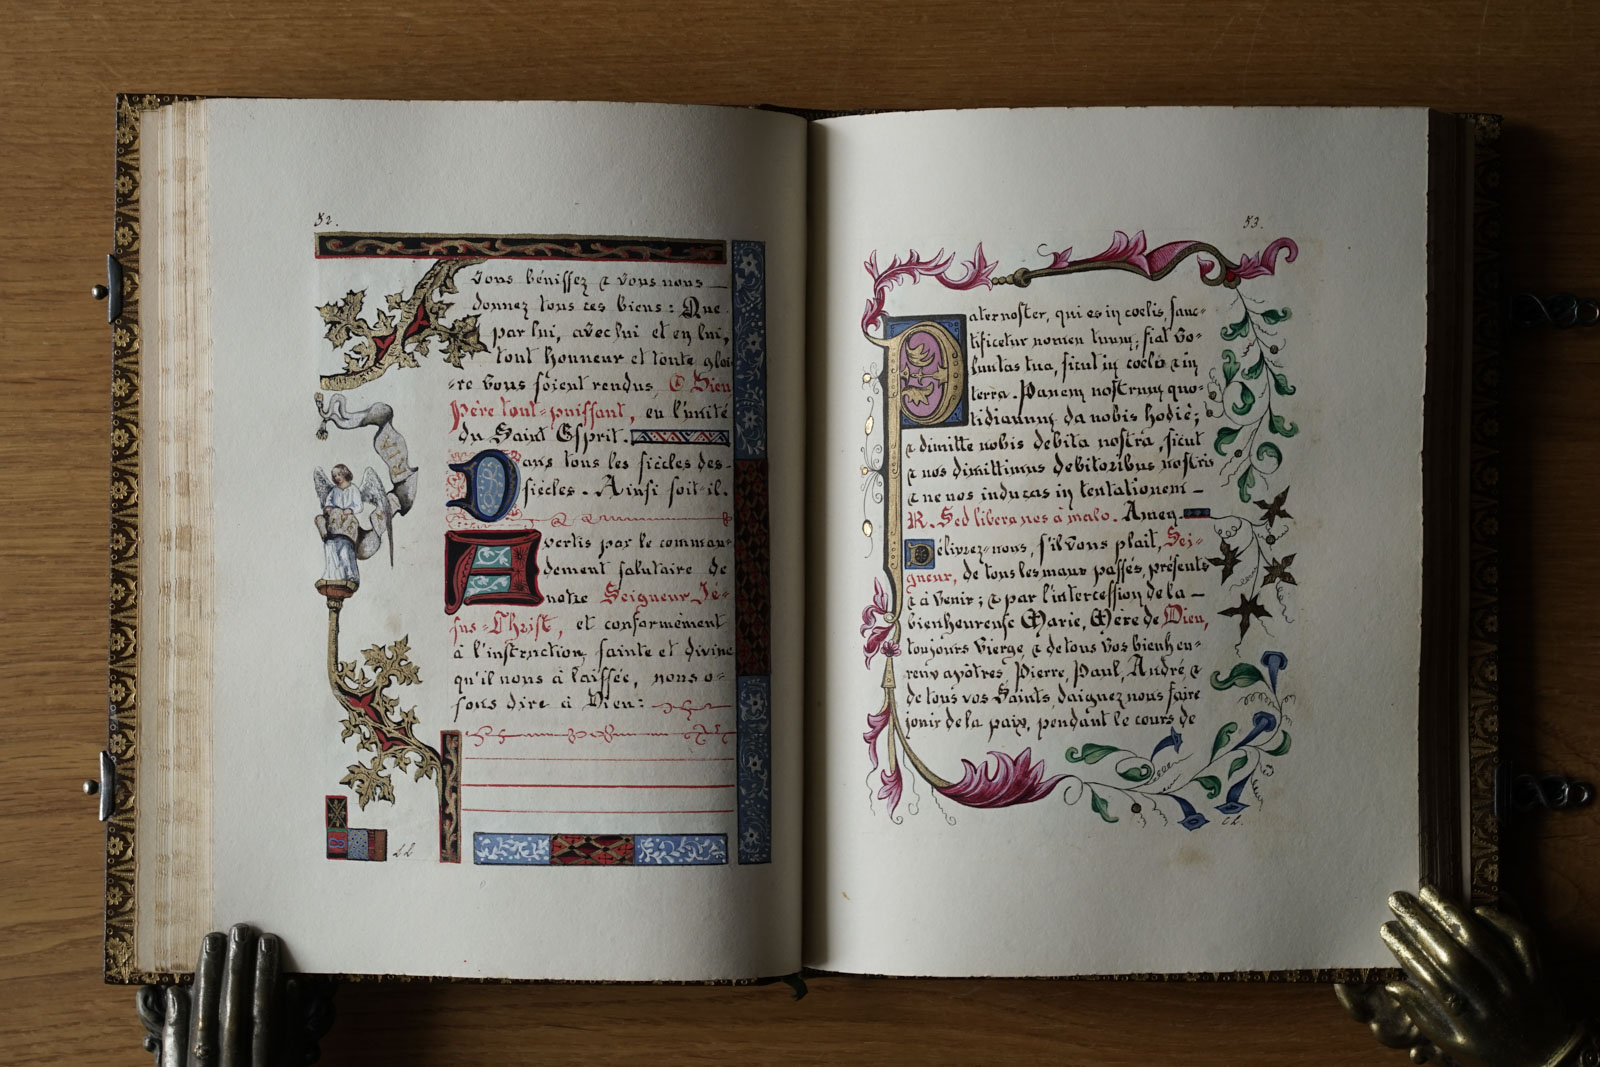 52.
vous bénissez & vous nous
donnez tous ces biens : Que
par lui, avec lui et en lui,
tout honneur et toute gloi-
-re vous soient rendus, O Dieu
Père tout-puissant, en l'unité
du Saint Esprit.
Dans tous les siècles des-
siècles. Ainsi soit-il.
Avertis par le comman-
dement salutaire de
notre Seigneur Jé-
sus-Christ, et conformément
à l'instruction, sainte et divine
qu'il nous à laissée, nous o-
sons dire à Dieu :
53.
Pater noster, qui es in coelis, sanc-
tificetur nomen tuum; fiat vo-
luntas tua, sicut in coelo & in
terra. Panem nostrum quo-
tidianum da nobis hodiè;
& dimitte nobis debita nostra, sicut
& nos dimittimus debitoribus nostris
& ne nos inducas in tentationem
R. Sed libera nos à malo. Amen.
Délivrez-nous, s'il vous plait, Sei-
gneur, de tous les maux passés, présents
& à venir ; & par l'intercession de la
bienheureuse Marie, Mère de Dieu,
toujours Vierge, & de tous vos bienheu-
reux apôtres, Pierre, Paul, André &
de tous vos Saints, daignez nous faire
jouir de la paix, pendant le cours de